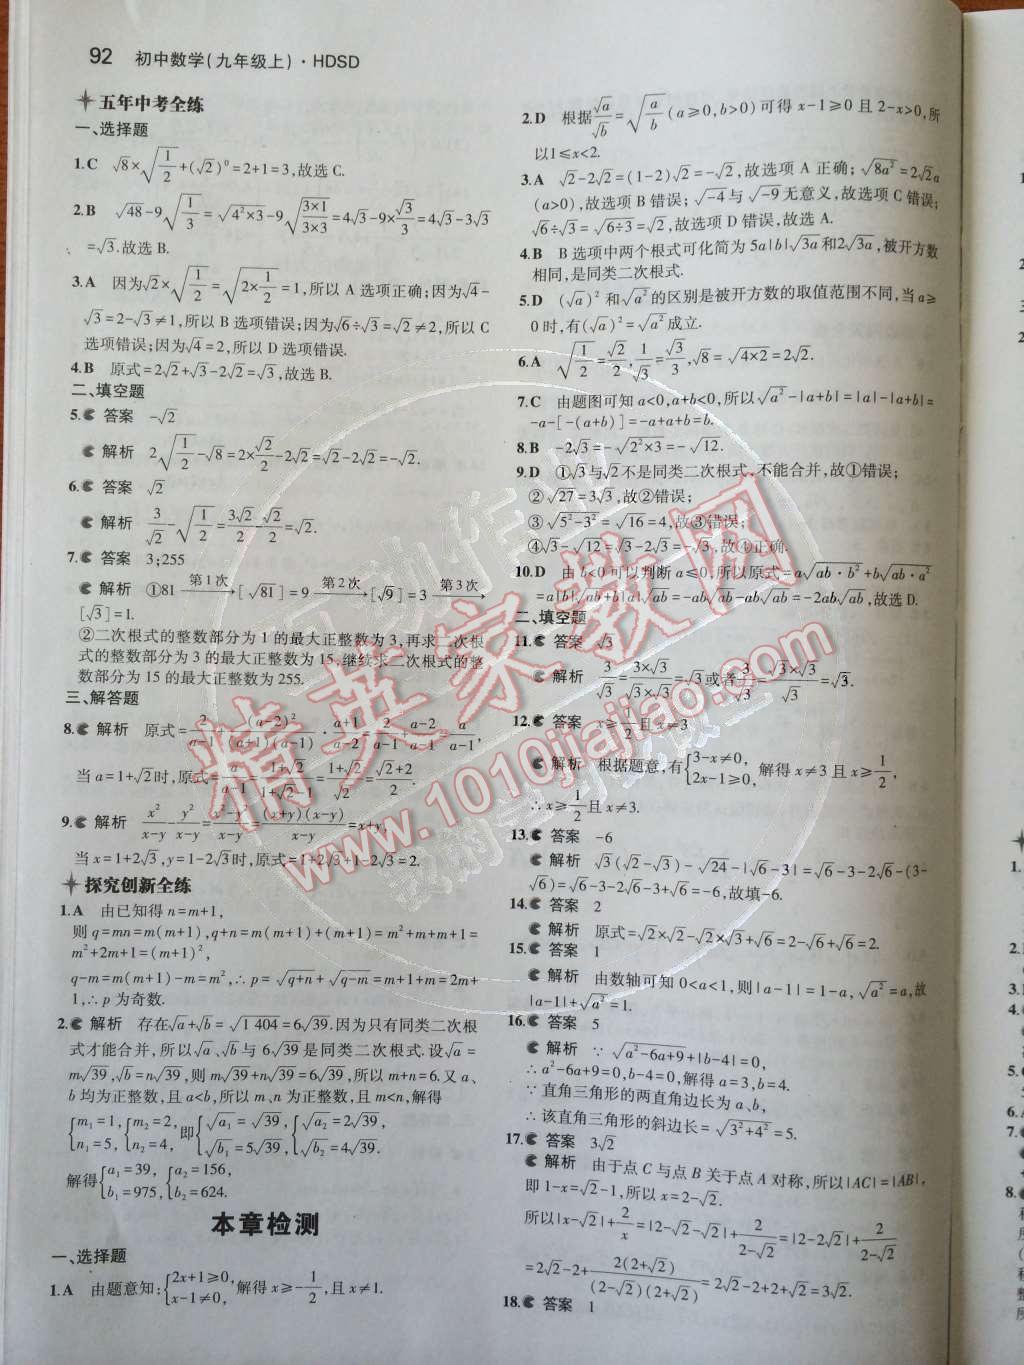 92 初中数学(九年级上)·HDSD
五年中考全练
一、选择题
1.C √8×√(1/2)+(√2)^0=2+1=3,故选 C.
2.B √48-9√(1/3)=√(4²×3)-9√((3×1)/(3×3))=4√3-9×√3/3=4√3-3√3
=√3.故选 B.
3.A 因为√2×√(1/2)=√(2×1/2)=1,所以 A 选项正确;因为√4-
√3=2-√3≠1,所以 B 选项错误;因为√6÷√3=√2≠2,所以 C
选项错误;因为√4=2,所以 D 选项错误.
4.B 原式=2√2+√3-2√2=√3,故选 B.
二、填空题
5. 答案 -√2
解析 2√(1/2)-√8=2×√2/2-2√2=√2-2√2=-√2.
6. 答案 √2
解析 3/√2-√(1/2)=3√2/2-√2/2=√2.
7. 答案 3;255
解析 ①81 第1次→[√81]=9 第2次→[√9]=3 第3次→
[√3]=1.
②二次根式的整数部分为 1 的最大正整数为 3,再求二次根
式的整数部分为 3 的最大正整数为 15,继续求二次根式的整
数部分为 15 的最大正整数为 255.
三、解答题
8. 解析 原式=2/(a-1)+(a-2)²/((a+1)(a-1))·(a+1)/(a-2)=2/(a-1)+(a-2)/(a-1)=a/(a-1),
当 a=1+√2时,原式=a/(a-1)=(1+√2)/(1+√2-1)=(1+√2)/√2=(√2+2)/2.
9. 解析 x²/(x-y)-y²/(x-y)=(x²-y²)/(x-y)=(x+y)(x-y)/(x-y)=x+y,
当 x=1+2√3,y=1-2√3时,原式=1+2√3+1-2√3=2.
探究创新全练
1.A 由已知得 n=m+1,
则 q=mn=m(m+1),q+n=m(m+1)+(m+1)=m²+m+m+1=
m²+2m+1=(m+1)²,
q-m=m(m+1)-m=m²,∴p=√(q+n)+√(q-m)=m+1+m=2m+
1,∴p 为奇数.
2. 解析 存在√a+√b=√1 404=6√39.因为只有同类二次根
式才能合并,所以√a、√b与 6√39是同类二次根式.设√a=
m√39,√b=n√39,则 m√39+n√39=6√39,所以 m+n=6.又 a、
b 均为正整数,且 a<b,所以 m、n 为正整数,且 m<n,解得
{m₁=1, n₁=5, {m₂=2, n₂=4, 即{√a₁=√39, √b₁=5√39, {√a₂=2√39, √b₂=4√39.
解得{a₁=39, b₁=975, {a₂=156, b₂=624.
本章检测
一、选择题
1.A 由题意知:{2x+1≥0, x-1≠0, 解得 x≥-1/2,且 x≠1.
2.D 根据√a/√b=√(a/b)(a≥0,b>0)可得 x-1≥0 且 2-x>0,所
以1≤x<2.
3.A √2-2√2=(1-2)√2=-√2,故选项 A 正确;√(8a²)=2√2a
(a>0),故选项 B 错误;√-4与√-9无意义,故选项 C 错误;
√6÷√3=√(6÷3)=√2,故选项 D 错误.故选 A.
4.B B 选项中两个根式可化简为 5a|b|√(3a)和2√(3a),被开方数
相同,是同类二次根式.
5.D (√a)²和√(a²)的区别是被开方数的取值范围不同,当 a≥
0时,有(√a)²=√(a²)成立.
6.A √(1/2)=√2/2,1/√3=√3/3,√8=√(4×2)=2√2.
7.C 由题图可知 a<0,a+b<0,所以√(a²)-|a+b|=|a|-|a+b|=
-a-[-(a+b)]=-a+a+b=b.
8.B -2√3=-√(2²×3)=-√12.
9.D ①√3与√2不是同类二次根式,不能合并,故①错误;
②√27=3√3,故②错误;
③√(5²-3²)=√16=4,故③错误;
④√3-√12=√3-2√3=-√3,故④正确.
10.D 由 b<0可以判断 a≤0,所以原式=a√(ab·b²)+b√(ab·a²)
=a|b|√ab+b|a|√ab=-ab√ab-ab√ab=-2ab√ab,故选 D.
二、填空题
11. 答案 √3
解析 3/√3=3×√3/(√3×√3)=√3或者3/√3=√3×√3/√3=√3.
12. 答案 x≥1/2且 x≠3
解析 根据题意,有{3-x≠0, 2x-1≥0, 解得 x≠3 且 x≥1/2,
∴x≥1/2且 x≠3.
13. 答案 -6
解析 √3(√2-√3)-√24-|√6-3|=√6-3-2√6-(3-
√6)=√6-3-2√6-3+√6=-6,故填-6.
14. 答案 2
解析 原式=√2×√2-√2×√3+√6=2-√6+√6=2.
15. 答案 1
解析 由数轴可知 0<a<1,则|a-1|=1-a,√(a²)=a,故
|a-1|+√(a²)=1.
16. 答案 5
解析 ∵√(a²-6a+9)+|b-4|=0,
∴a²-6a+9=0,b-4=0,解得 a=3,b=4.
∵直角三角形的两直角边长为 a、b,
∴该直角三角形的斜边长=√(3²+4²)=5.
17. 答案 3√2
解析 由于点 C 与点 B 关于点 A 对称,所以|AC|=|AB|,
即 1-x=√2-1,所以 x=2-√2.
所以|x-√2|+2/x=|2-√2-√2|+2/(2-√2)=|2-2√2|+2/(2-√2)
=2√2-2+2(2+√2)/((2-√2)(2+√2))=2√2-2+2+√2=3√2.
18. 答案 1
精英家教网
www.1010jiajiao.com